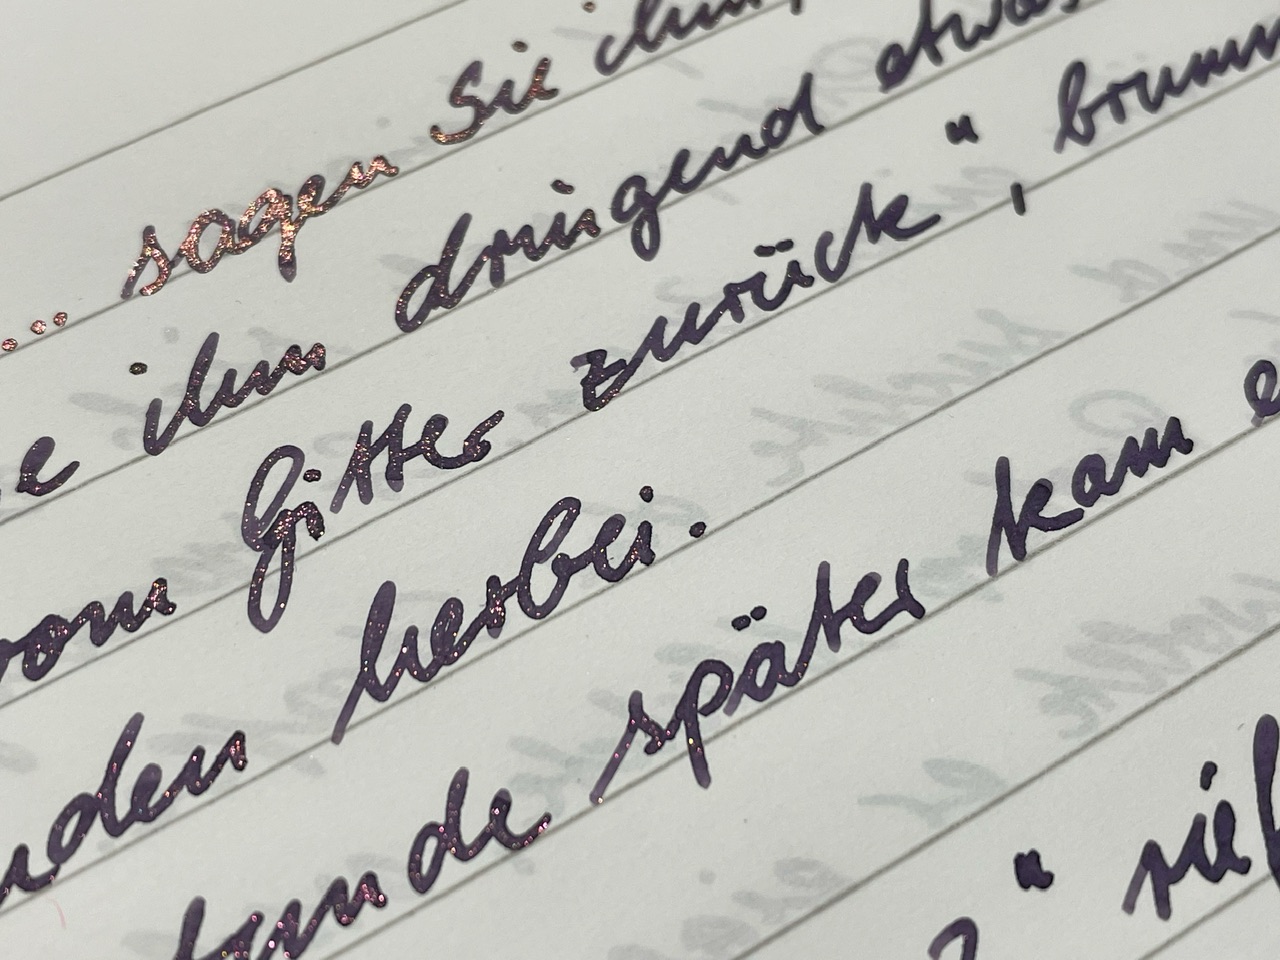 ... sagen Sie ihm,
e ihm dringend etwas
vom Gitter zurück", brumm
nden herbei.
tunde später kam e
?" rief